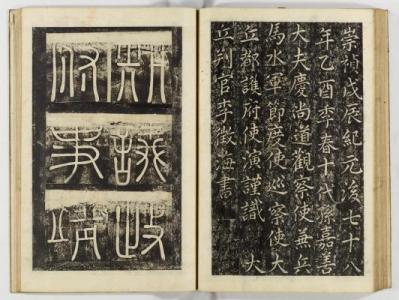 崇禎戊辰紀元後七十八
年乙酉季春十代孫嘉善
大夫慶尚道觀察使兼兵
馬水軍節度使巡察使大
丘都護府使演謹識 大
丘判官李徵海書
議
事
靖